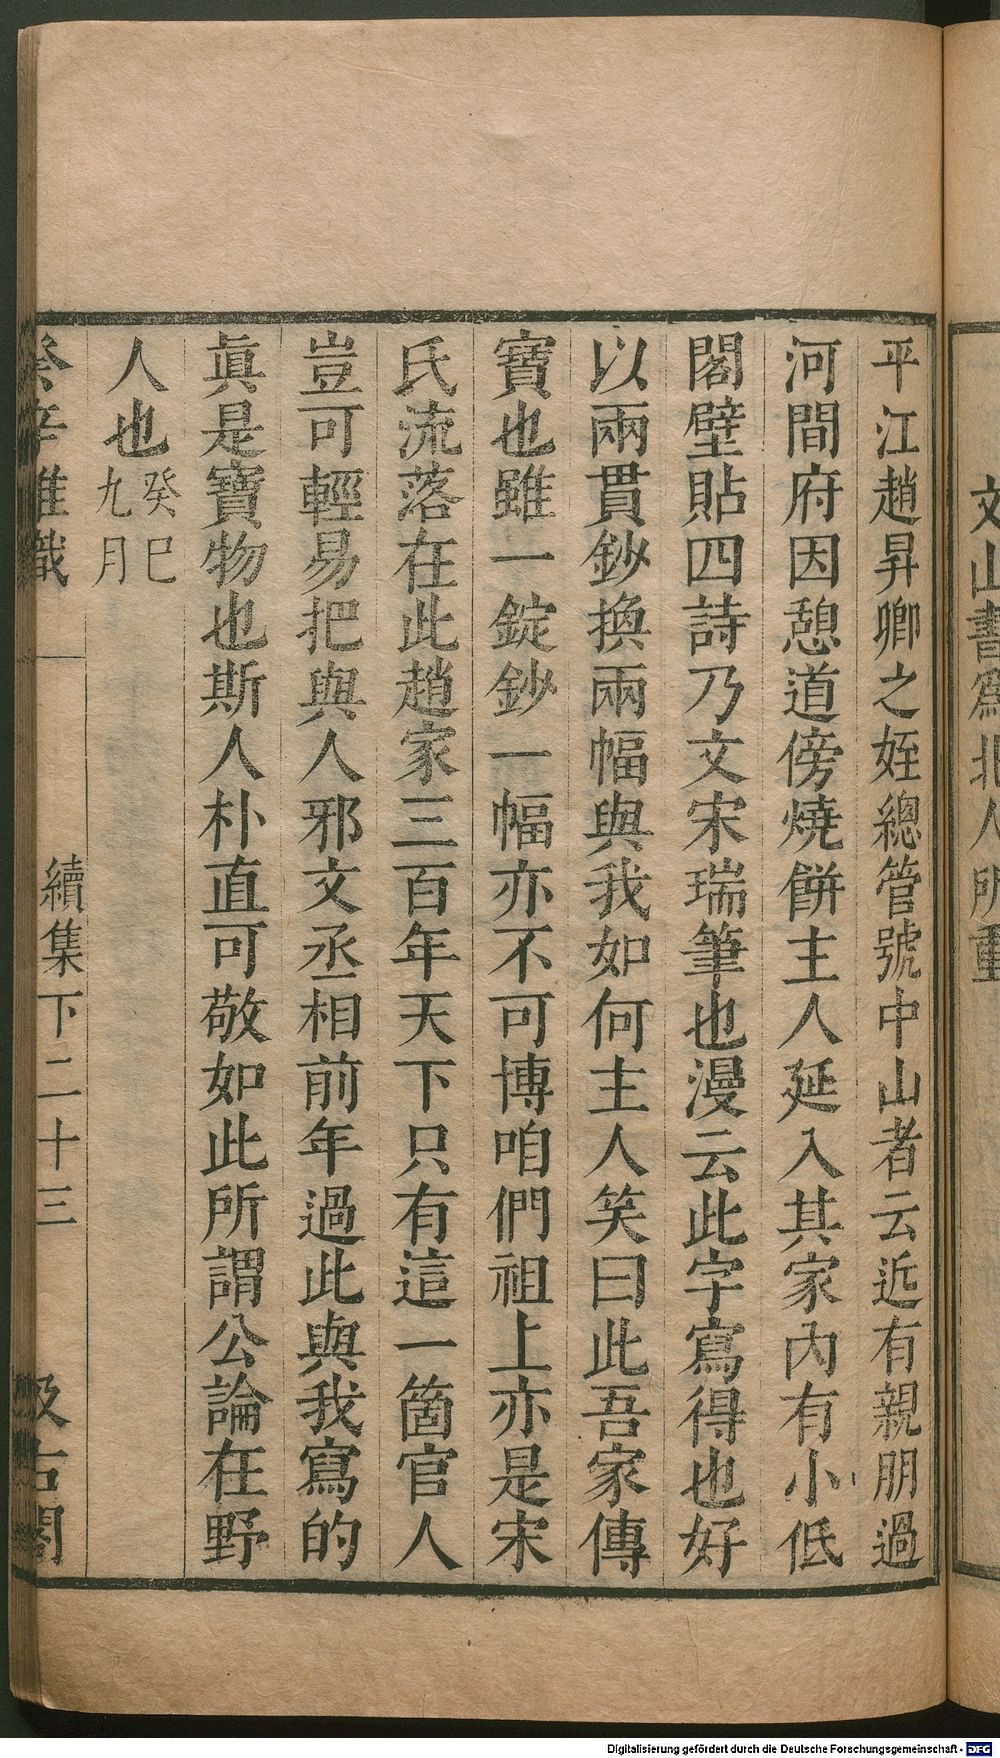 文山書爲北人所重
平江趙昇卿之姪總管號中山者云近有親朋過
河間府因憩道傍燒餅主人延入其家內有小低
閣壁貼四詩乃文宋瑞筆也漫云此字寫得也好
以兩貫鈔換兩幅與我如何主人笑曰此吾家傳
寶也雖一錠鈔一幅亦不可博咱們祖上亦是宋
氏流落在此趙家三百年天下只有這一箇官人
豈可輕易把與人邪文丞相前年過此與我寫的
眞是寶物也斯人朴直可敬如此所謂公論在野
人也癸巳九月
癸辛雜識 續集下二十三 汲古閣
Digitalisierung gefördert durch die Deutsche Forschungsgemeinschaft - DFG